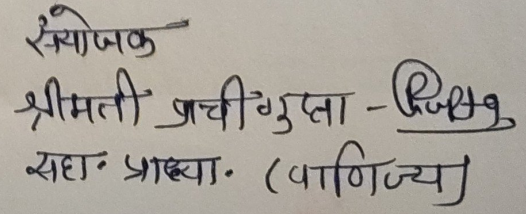 संयोजक
श्रीमती प्रची गुप्ता -
सहा. प्राध्या. (वाणिज्य)